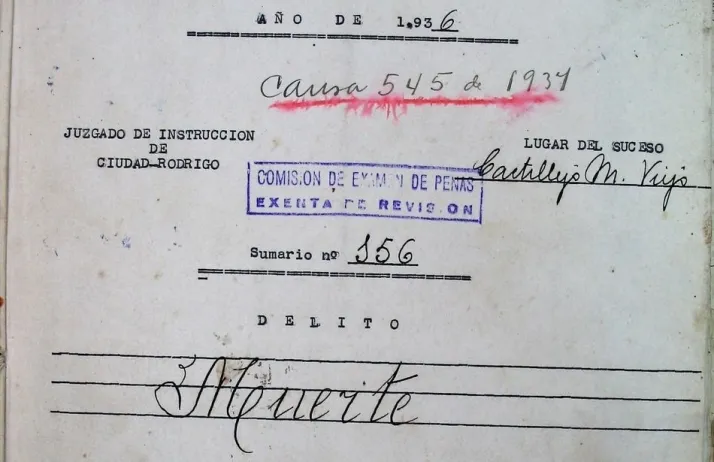 AÑO DE 1.936
Causa 545 de 1937
JUZGADO DE INSTRUCCION
DE
CIUDAD-RODRIGO
LUGAR DEL SUCESO
Castillejo M. Viejo
COMISION DE EXAMEN DE PENAS
EXENTA DE REVISION
Sumario nº 156
DELITO
Muerte